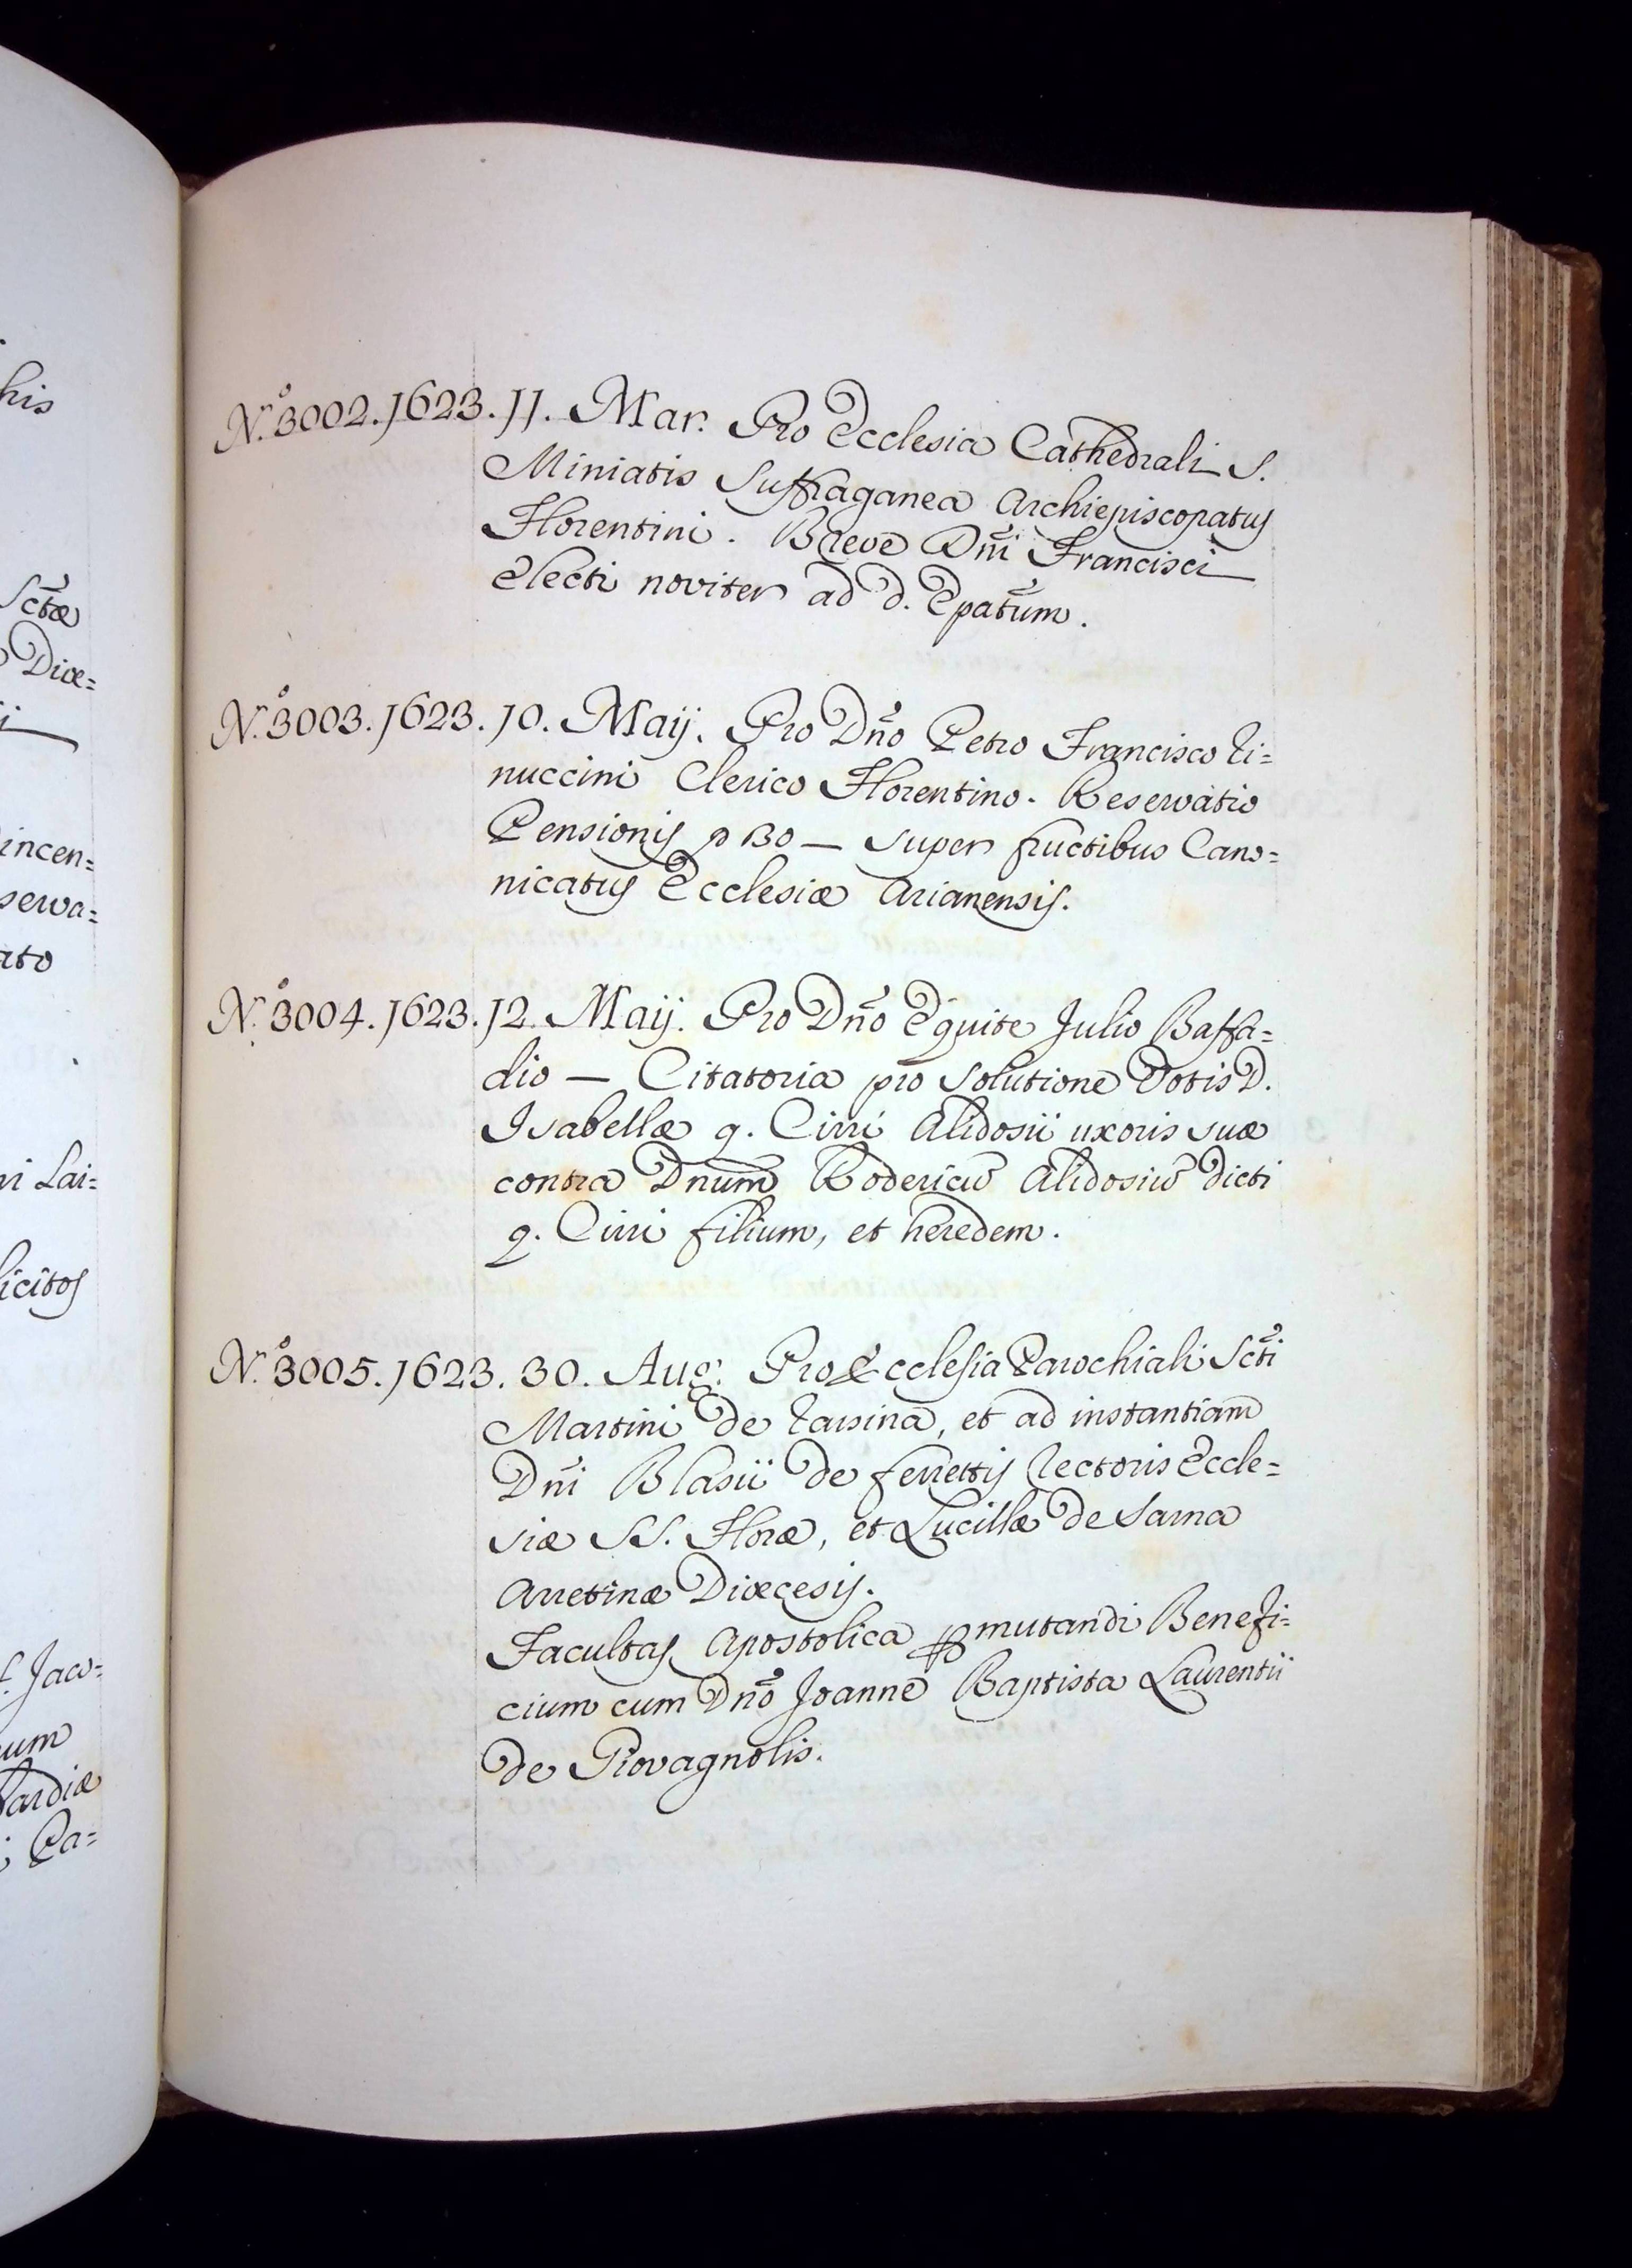 his
Sctæ
Diœ=
incen=
serva=
ato
ri Lai=
icitos
f. Jaco=
cum
Bardiæ
; Pa=
N.º 3002. 1623. 11. Mar. Pro Ecclesia Cathedrali S.
Miniatis Suffraganea Archiepiscopatus
Florentini. Breve Dñi Francisci
electi noviter ad d. Epatum.
N.º 3003. 1623. 10. Maij. Pro Dño Petro Francisco Ri=
nuccini Clerico Florentino. Reservatio
Pensionis 130 — super fructibus Cano=
nicatus Ecclesiæ Arianensis.
N.º 3004. 1623. 12. Maij. Pro Dño Equite Julio Baffa=
dio — Citatoria pro solutione Dotis D.
Isabellæ q. Cirri Alidosii uxoris suæ
contra Dnum Rodericū Alidosiū dicti
q. Cirri filium, et heredem.
N.º 3005. 1623. 30. Aug. Pro Ecclesia Parochiali Scti
Martini de Rassina, et ad instantiam
Dñi Blasii de ferrettis Rectoris Eccle=
siæ SS. Floræ, et Lucillæ de Sarna
Arretinæ Diœcesis.
Facultas Apostolica p̱mutandi Benefi=
cium cum Dño Joanne Baptista Laurentii
de Provagnolis.